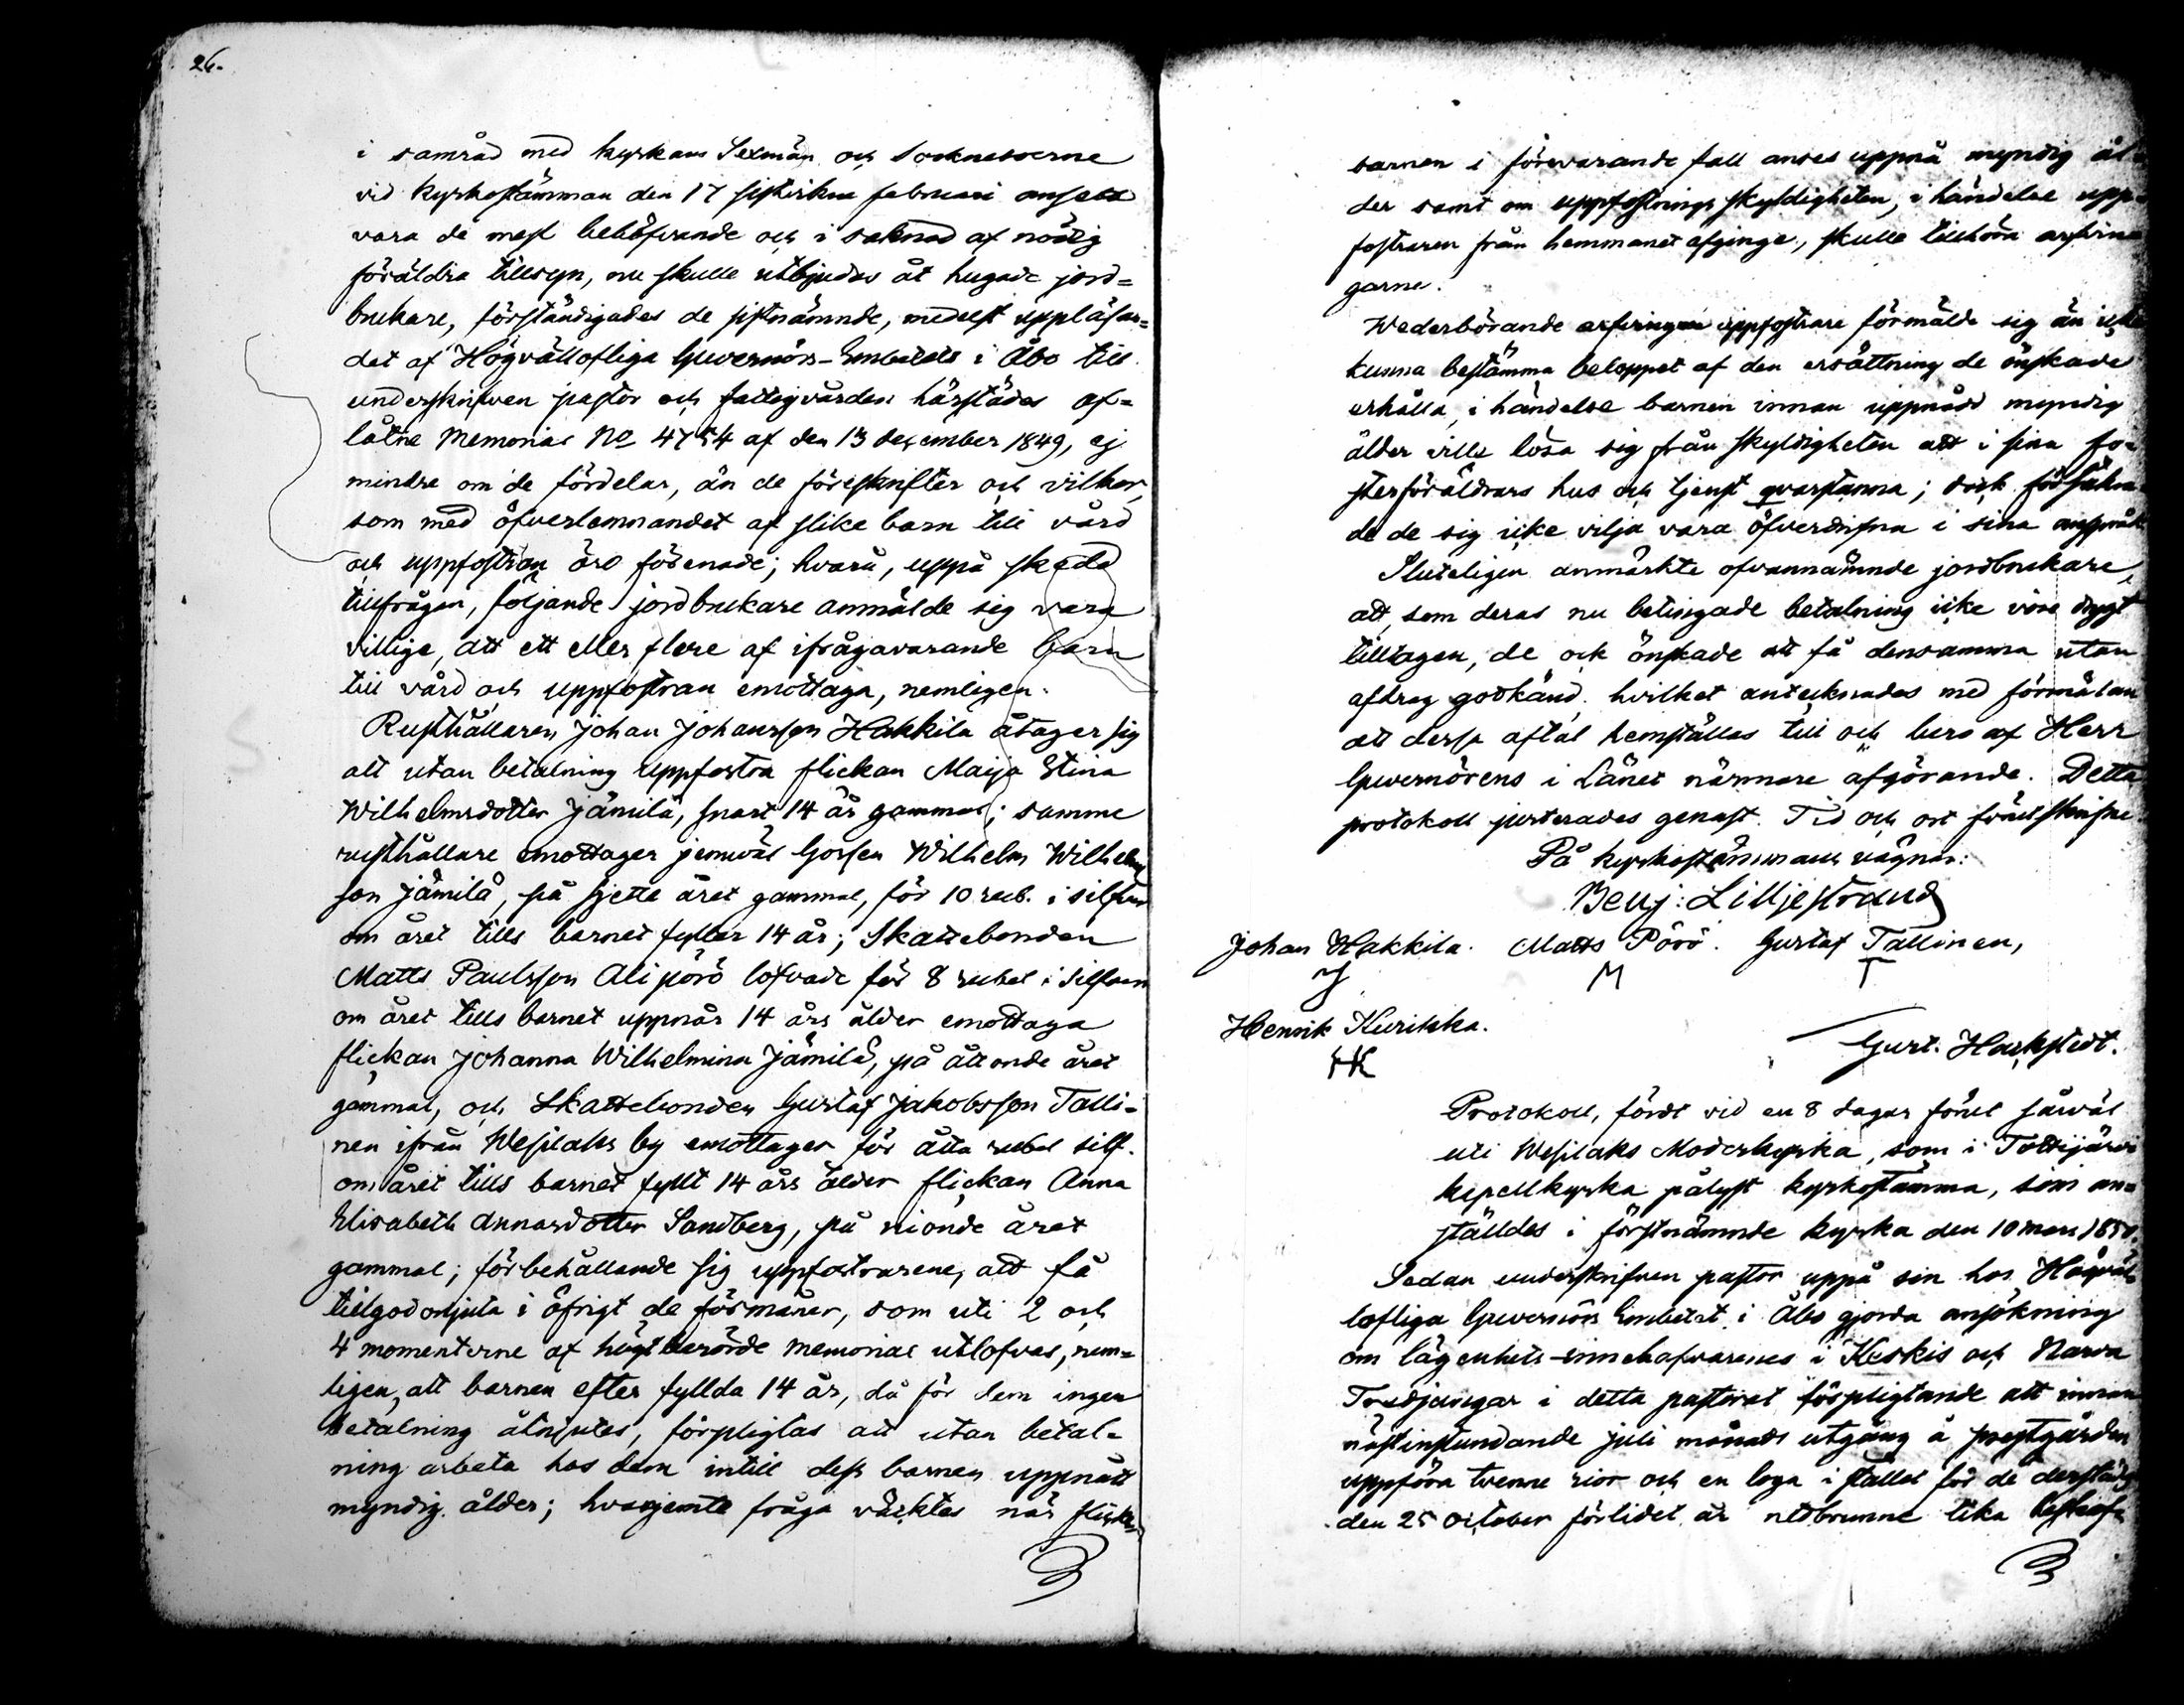 26.
i samråd med kyrkans Sexmän och Socknestoerne
vid kyrkostämman den 17 sistvikne februari ansett
vara de mest behöfvande och i saknad af nödig
föräldra tillsyn, nu skulle utbjudas åt hugade jord=
brukare, förständigades de sistnämnde, medelst uppläsan=
det af Högvällofliga Guvernörs-Embetets i Åbo till
underskrifven pastor och fattigvården härstädes af=
låtne Memorial No 4754 af den 13 december 1849, ej
mindre om de fördelar, än de föreskrifter och vilkor,
som med öfverlemnandet af slike barn till vård
och uppfostran äro förenade; hvarå, uppå skedd
tillfrågan, följande jordbrukare anmälde sig vara
villige, att ett eller flere af ifrågavarande barn
till vård och uppfostran emottaga, nemligen.
Rusthållaren Johan Johansson Hakkila åtager sig
att utan betalning uppfostra flickan Maija Stina
Wilhelmsdotter Jämilä, snart 14 år gammal; samme
rusthållare emottager jemväl Gossen Wilhelm Wilhelms
son Jämilä, på sjette året gammal, för 10 rub. i silfver
om året tills barnet fyller 14 år; Skattebonden
Matts Paulsson Alipörö lofvade för 8 rubel i silfver
om året tills barnet uppnår 14 års ålder emottaga
flickan Johanna Wilhelmina Jämilä, på åttonde året
gammal, och Skattebonden Gustaf Jakobsson Talli-
nen ifrån Wesilaks by emottager för åtta rubel silf.
om året tills barnet fyllt 14 års ålder flickan Anna
Elisabeth Annasdotter Sandberg, på nionde året
gammal; förbehållande sig uppfostrarene, att få
tillgodonjuta i öfrigt de förmåner, som uti 2 och
4 momenterne af högtberörde Memorial utlofvas, nem=
ligen, att barnen efter fyllda 14 år, då för dem ingen
betalning åtnjutes, förpligtas att utan betal-
ning arbeta hos dem intill dess barnen uppnått
myndig ålder; hvarjemte fråga väcktes när flicke=
barnen i förevarande fall anses uppnå myndig ål=
der samt om uppfostrings skyldigheten, i händelse upp=
fostraren från hemmanet afginge, skulle tillhöra arfvin
garne.
Wederbörande uppfostrare förmälde sig än icke
kunna bestämma beloppet af den ersättning de önskade
erhålla, i händelse barnen innan uppnådd myndig
ålder ville lösa sig från skyldigheten att i sina fo=
sterföräldrars hus och tjenst qvarstanna; dock försäkra=
de de sig icke vilja vara öfverdrifna i sina anspråk
Sluteligen anmärkte ofvannämnde jordbrukare,
att, som deras nu betingade betalning icke vore drygt
tilltagen, de ock önskade att få densamma utan
afdrag godkänd. hvilket antecknades med förmälan
att dessa aftal hemställas till och bero af Herr
Guvernörens i Länet närmare afgörande. Detta
protokoll justerades genast. Tid och ort förutskrifne
På kyrkostämmans vägnar:
Benj: Lilljestrand
Johan Hakkila. Matts Pörö. Gustaf Tallinen,
J M T
Henrik Kurikka.
HK
Gust. Hackstedt.
Protokoll, fördt vid en 8 dagar förut såwäl
uti Wesilaks Moderkyrka, som i Tottijärvi
kapellkyrka pålyst kyrkostämma, som an=
ställdes i förstnämnde kyrka den 10 Mars 1850.
Sedan underskrifven pastor uppå sin hos Högväl
lofliga Guvernörs Embetet i Åbo gjorda ansökning
om lägenhets-innehafvarenes i Keskis och Narva
Tredjungar i detta pastorat förpligtande att innan
nästinstundande juli månads utgång å prestgården
uppföra tvenne rior och en loga i stället för de derstädes
den 25 October förlidet år nedbrunne lika